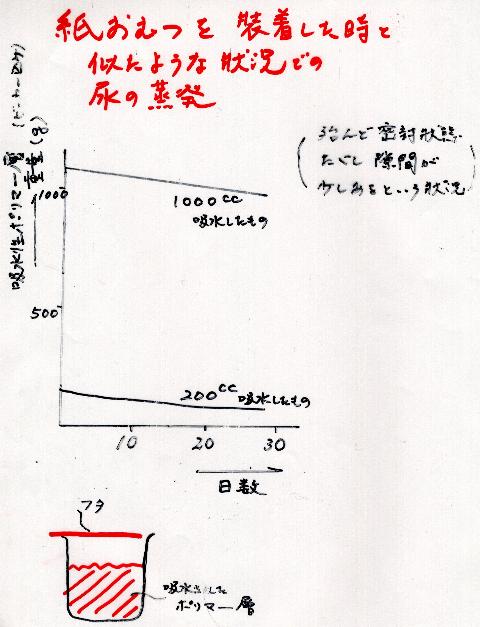 紙おむつを 装着した時と
似たような状況での
尿の蒸発
(殆んど密封状態
ただし隙間が
少しあるという状況)
吸水性ポリマー層
重量(g)
1000
500
1000cc
吸水したもの
200cc吸水したもの
10 20 30
日数
フタ
吸水した
ポリマー層